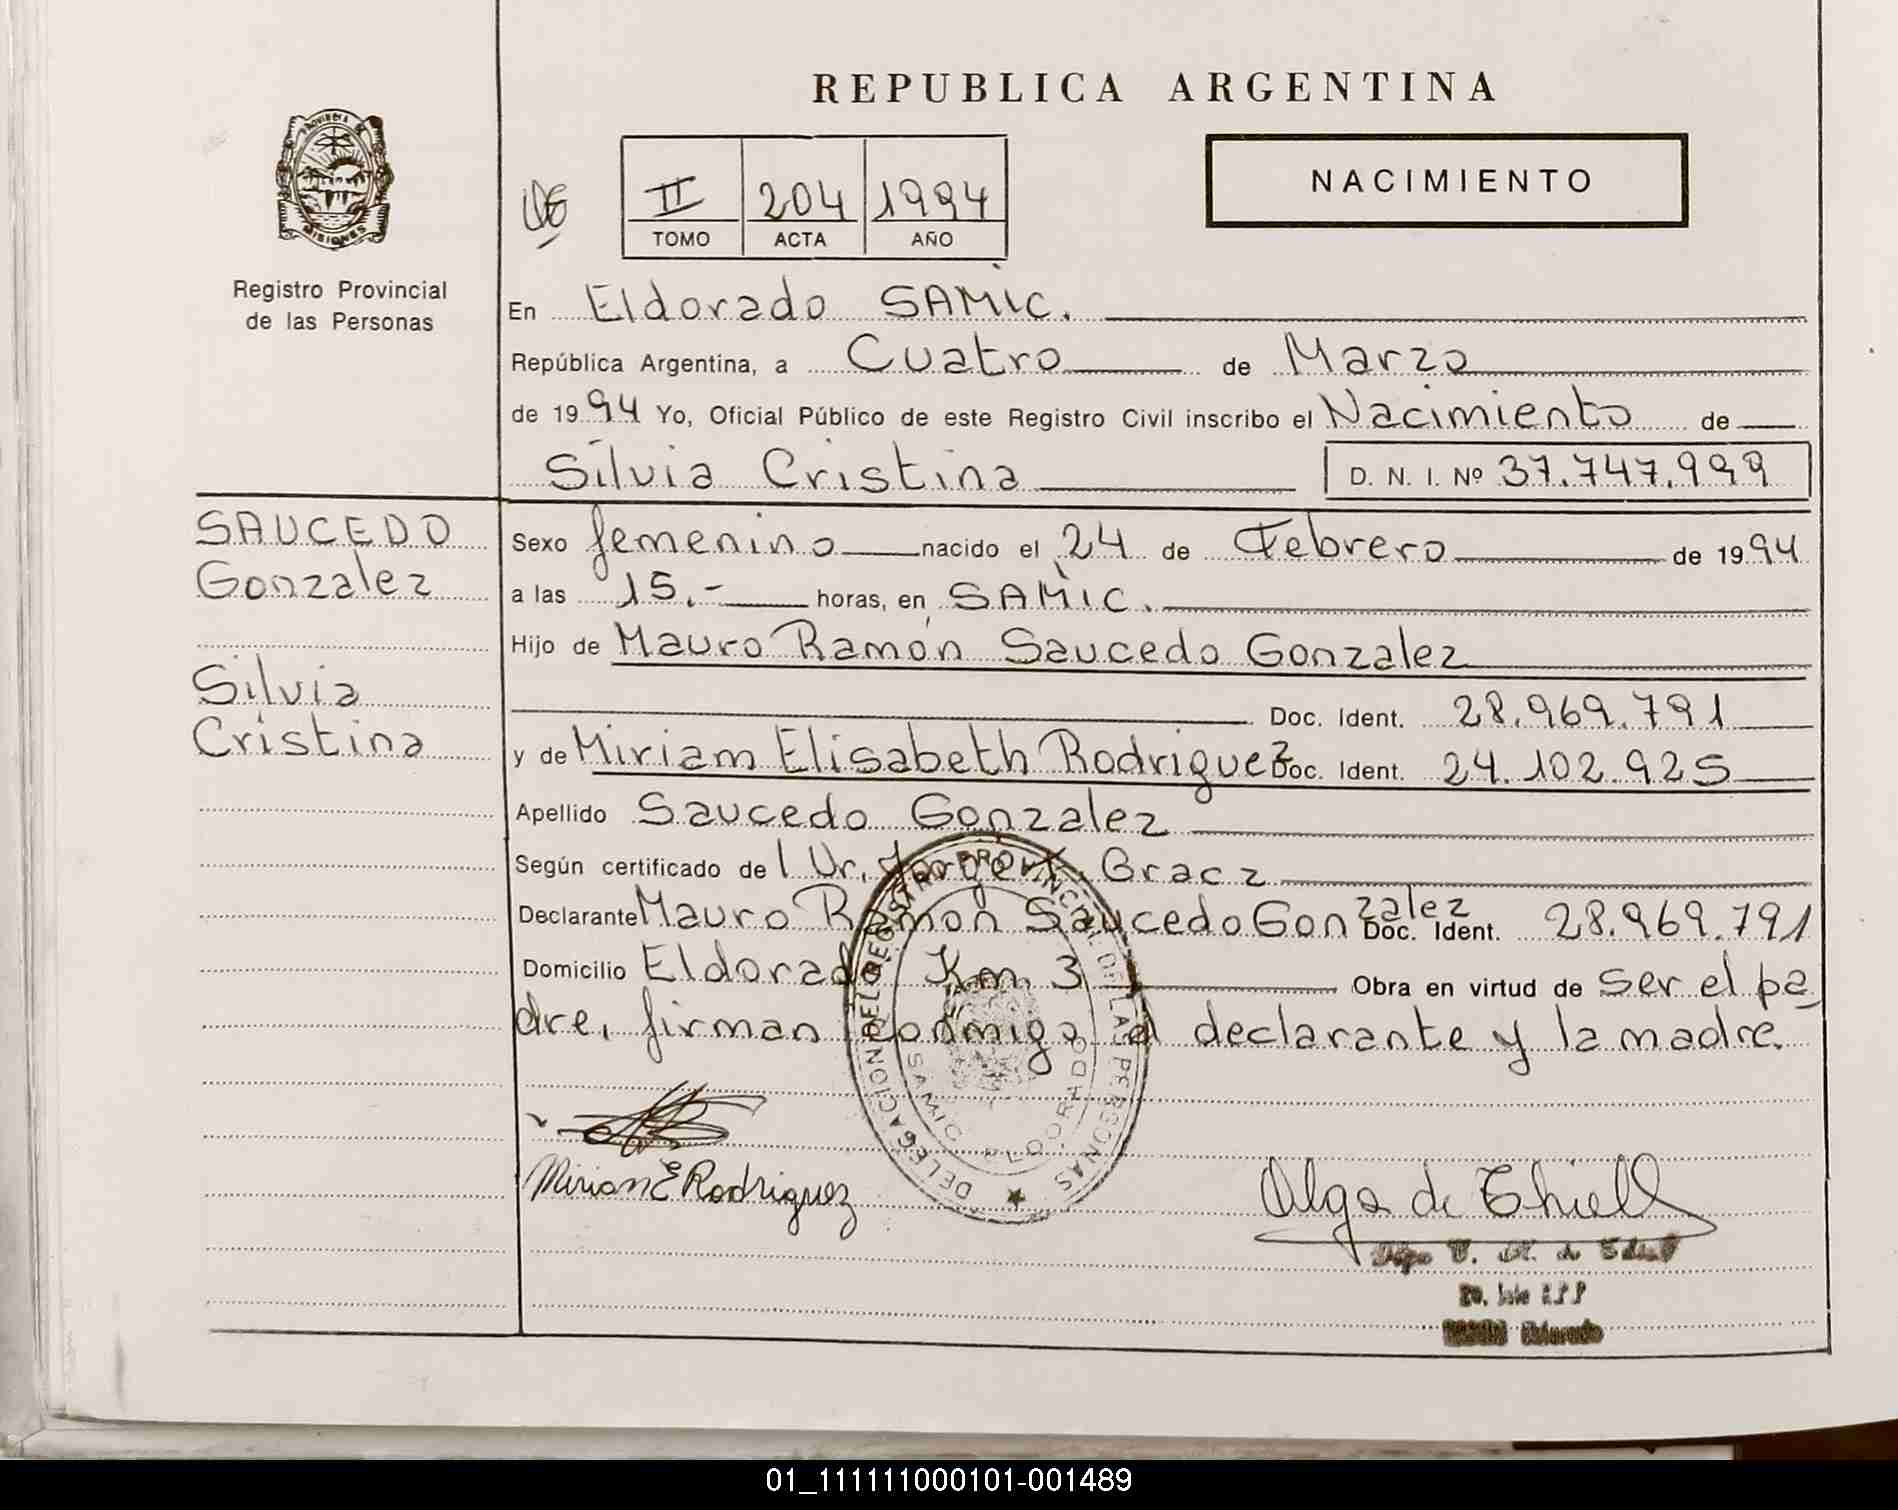 REPUBLICA ARGENTINA
PROVINCIA DE
MISIONES
Registro Provincial
de las Personas
II 204 1994
TOMO ACTA AÑO
NACIMIENTO
En Eldorado SAMIC.
República Argentina, a Cuatro de Marzo
de 1994 Yo, Oficial Público de este Registro Civil inscribo el Nacimiento de
Silvia Cristina D. N. I. Nº 37.747.999
SAUCEDO
Gonzalez
Silvia
Cristina
Sexo femenino nacido el 24 de Febrero de 1994
a las 15.- horas, en SAMIC.
Hijo de Mauro Ramón Saucedo Gonzalez
Doc. Ident. 28.969.791
y de Miriam Elisabeth Rodriguez Doc. Ident. 24.102.925
Apellido Saucedo Gonzalez
Según certificado de l Dr. Jorge Bracz
Declarante Mauro Ramon Saucedo Gonzalez Doc. Ident. 28.969.791
Domicilio Eldorado Km. 3 Obra en virtud de ser el pa
dre, firman conmigo el declarante y la madre.
DELEGACION DEL REGISTRO PROVINCIAL DE LAS PERSONAS
SAMIC ELDORADO
Mirian E Rodriguez
Olga de Thiell
Eldorado
01_111111000101-001489